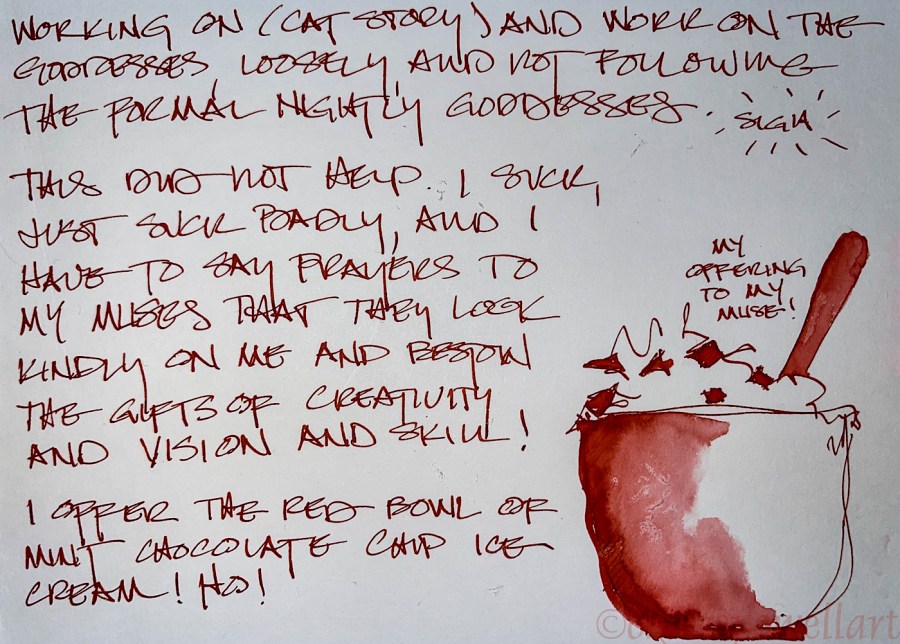 WORKING ON (CAT STORY) AND WORK ON THE
GODDESSES, LOOSELY, AND NOT FOLLOWING
THE FORMAL NIGHTLY GODDESSES. SIGH
THIS DID NOT HELP. I SUCK,
JUST SUCK BADLY, AND I
HAVE TO SAY PRAYERS TO
MY MUSES THAT THEY LOOK
KINDLY ON ME AND BESTOW
THE GIFTS OF CREATIVITY
AND VISION AND SKILL!
I OFFER THE RED BOWL OF
MINT CHOCOLATE CHIP ICE
CREAM! HO!
MY
OFFERING
TO MY
MUSE!